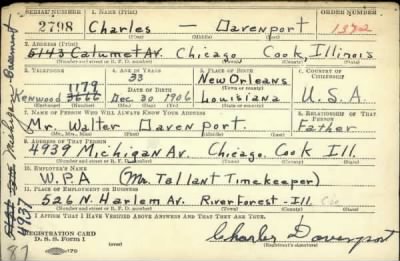 SERIAL NUMBER 1. NAME (Print) ORDER NUMBER
2798 Charles — Davenport 1372
(First) (Middle) (Last)
2. ADDRESS (Print)
5143 Calumet Av. Chicago, Cook, Illinois
(Number and street or R. F. D. number) (Town) (County) (State)
3. TELEPHONE 4. AGE IN YEARS 5. PLACE OF BIRTH 6. COUNTRY OF CITIZENSHIP
33 New Orleans
1179 DATE OF BIRTH (Town or county)
Kenwood 3666 Dec. 30 1906 Louisiana U.S.A.
(Exchange) (Number) (Mo.) (Day) (Yr.) (State or country)
7. NAME OF PERSON WHO WILL ALWAYS KNOW YOUR ADDRESS 8. RELATIONSHIP OF THAT PERSON
Mr. Walter Davenport. Father
(Mr., Mrs., Miss) (First) (Middle) (Last)
9. ADDRESS OF THAT PERSON
4939 Michigan Av. Chicago Cook Ill.
(Number and street or R. F. D. number) (Town) (County) (State)
10. EMPLOYER'S NAME
W.P.A (Mr. Tallant Timekeeper)
11. PLACE OF EMPLOYMENT OR BUSINESS
526 N. Harlem Av. River Forest - Ill.
(Number and street or R. F. D. number) (Town) (County) (State)
I AFFIRM THAT I HAVE VERIFIED ABOVE ANSWERS AND THAT THEY ARE TRUE.
REGISTRATION CARD
D. S. S. Form 1
Charles Davenport
(Registrant's signature)
4937 Michigan Basement
87